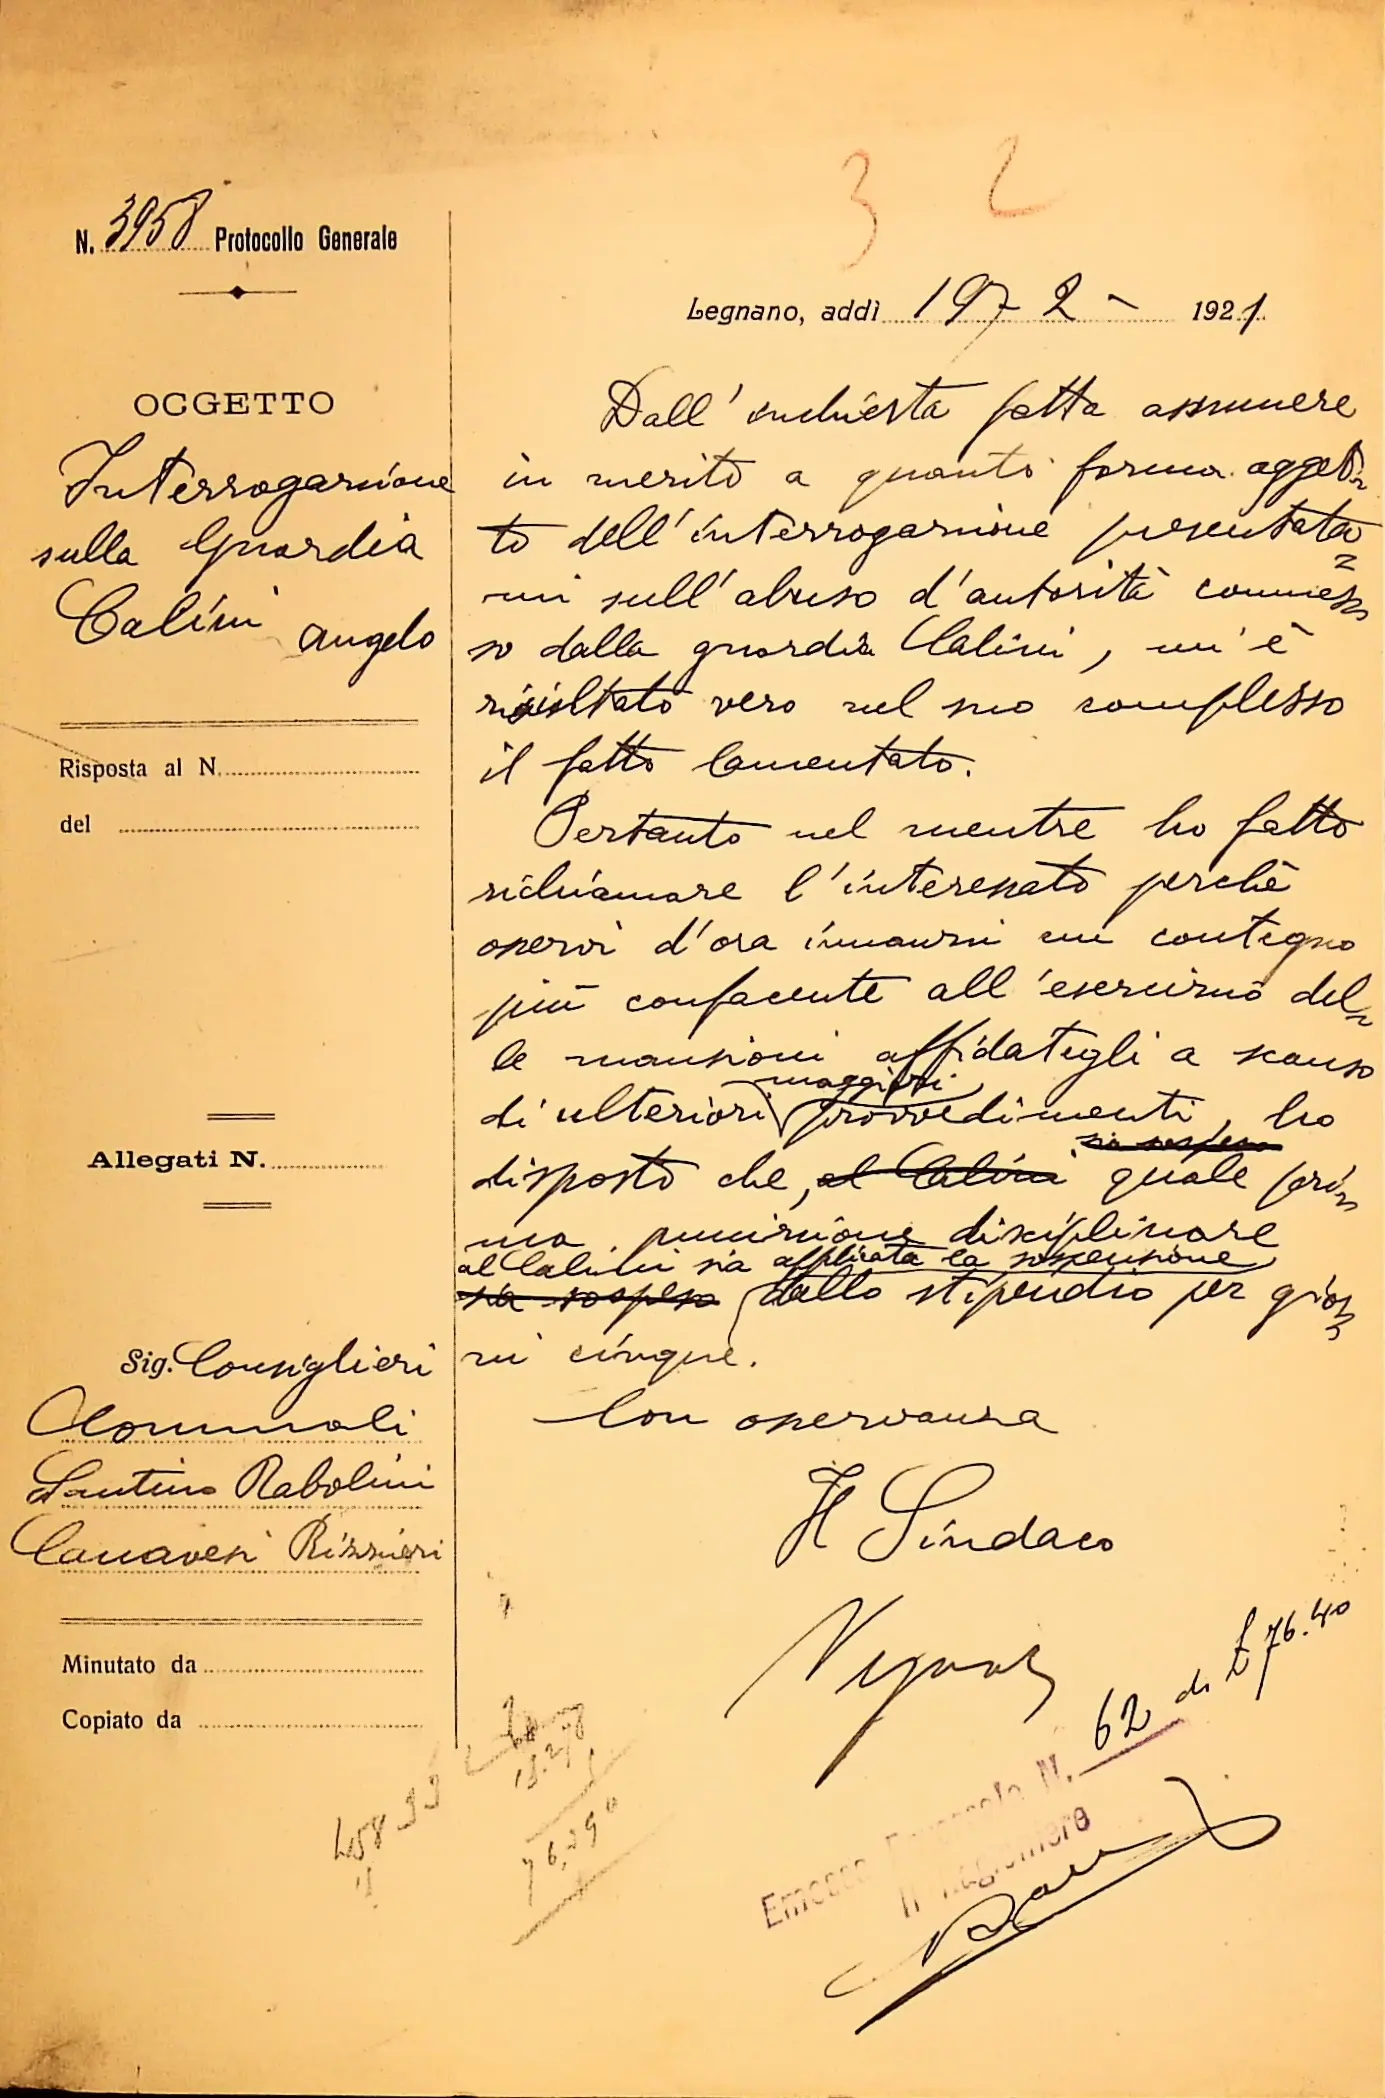 3 2
N. 3958 Protocollo Generale
Legnano, addì 19 7 2 - 1921
OGGETTO
Interrogazione
sulla Guardia
Calini Angelo
Risposta al N.
del
Allegati N.
Sig. Consiglieri
Santino Rabolini
Canavesi Rizzieri
Minutato da
Copiato da
Dall'inchiesta fatta assumere
in merito a quanto forma ogget-
to dell'interrogazione presentata=
mi sull'abuso d'autorità commes=
so dalla guardia Calini, mi è
risultato vero nel suo complesso
il fatto lamentato.
Pertanto nel mentre ho fatto
richiamare l'interessato perchè
osservi d'ora innanzi un contegno
più confacente all'esercizio del=
le mansioni affidategli a scanso
maggiori
di ulteriori provvedimenti, ho
sia sospeso
disposto che, al Calini quale pri=
ma punizione disciplinare
al Calini sia applicata la sospensione
sia sospeso dallo stipendio per gior=
ni cinque.
Con osservanza
Il Sindaco
62 di £ 76.40
Emesso N.
Il Ragioniere